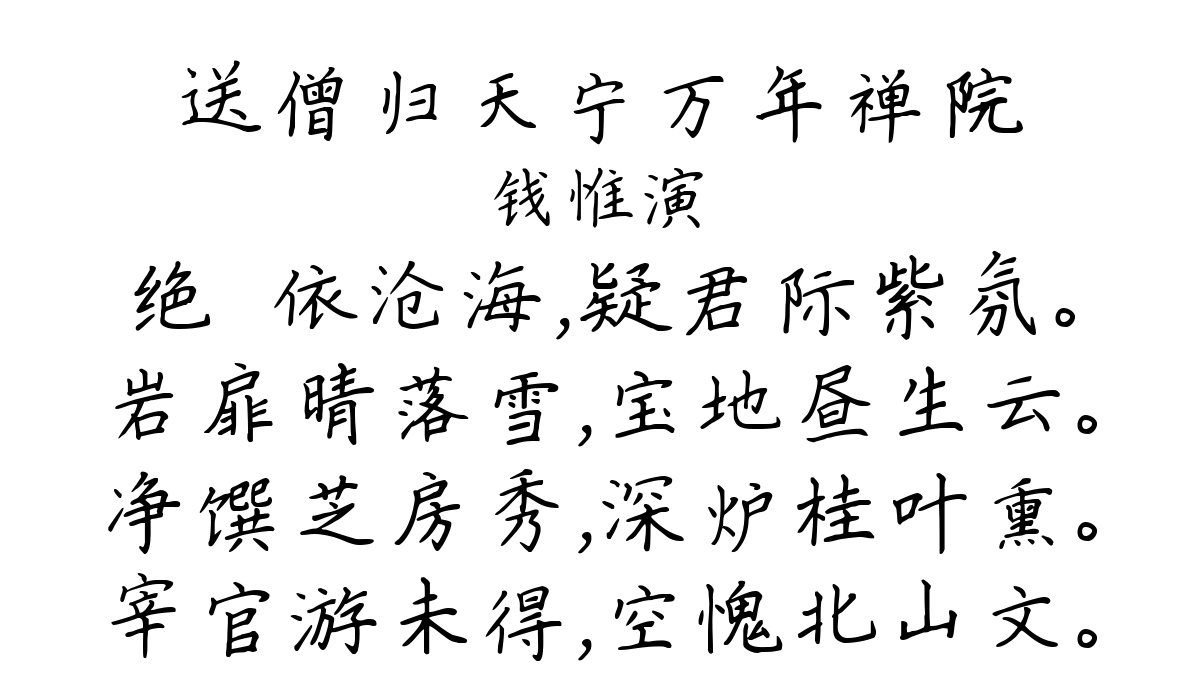 送僧归天宁万年禅院
钱惟演
绝 依沧海,疑君际紫氛。
岩扉晴落雪,宝地昼生云。
净馔芝房秀,深炉桂叶熏。
宰官游未得,空愧北山文。